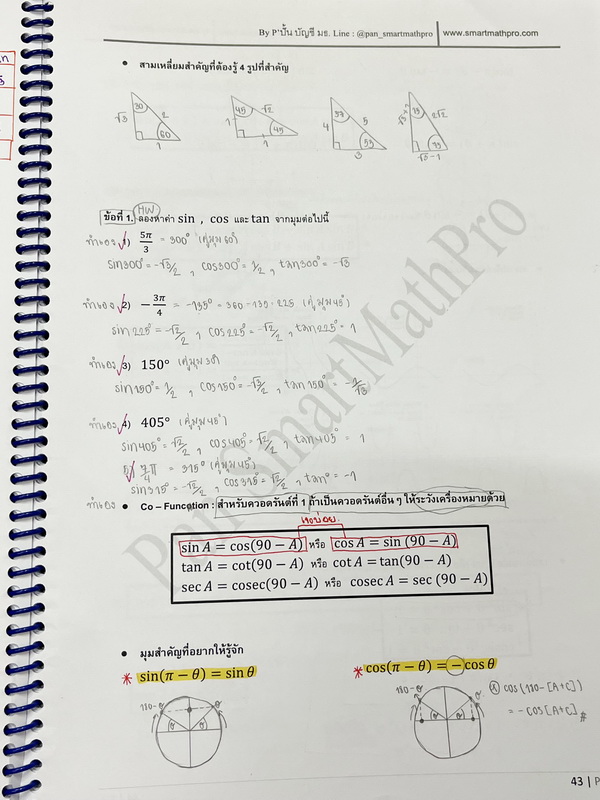 By P'ปั้น บัญชี มธ. Line : @pan_smartmathpro | www.smartmathpro.com
• สามเหลี่ยมสำคัญที่ต้องรู้ 4 รูปที่สำคัญ
30 √3 2 60 1
45 √2 1 45 1
37 5 4 53 3
15 2√2 √3+1 75 √3-1
HW
ข้อที่ 1. ลองหาค่า sin , cos และ tan จากมุมต่อไปนี้
ทำเอง 1) 5π/3 = 300° (คู่มุม 60)
sin300° = -√3/2 , cos300° = 1/2 , tan300° = -√3
ทำเอง 2) -3π/4 = -135° = 360-135 = 225 (คู่มุม 45°)
sin225° = -√2/2 , cos225° = -√2/2 , tan225° = 1
ทำเอง 3) 150° (คู่มุม 30)
sin150° = 1/2 , cos150° = -√3/2 , tan150° = -1/√3
ทำเอง 4) 405° (คู่มุม 45°)
sin405° = √2/2 , cos405° = √2/2 , tan405° = 1
5) 7π/4 = 315° (คู่มุม 45)
sin315° = -√2/2 , cos315° = √2/2 , tan° = -1
ทำเอง • Co – Function : สำหรับควอดรันต์ที่ 1 ถ้าเป็นควอดรันต์อื่น ๆ ให้ระวังเครื่องหมายด้วย
เจอบ่อย.
sin A = cos(90 − A) หรือ cos A = sin (90 − A)
tan A = cot(90 − A) หรือ cot A = tan(90 − A)
sec A = cosec(90 − A) หรือ cosec A = sec (90 − A)
• มุมสำคัญที่อยากให้รู้จัก
* sin(π − θ) = sin θ
* cos(π − θ) = − cos θ
180-θ θ θ θ
180-θ θ θ θ
cos(180-[A+C])
= -cos[A+C] #
PanSmartMathPro
43 | P